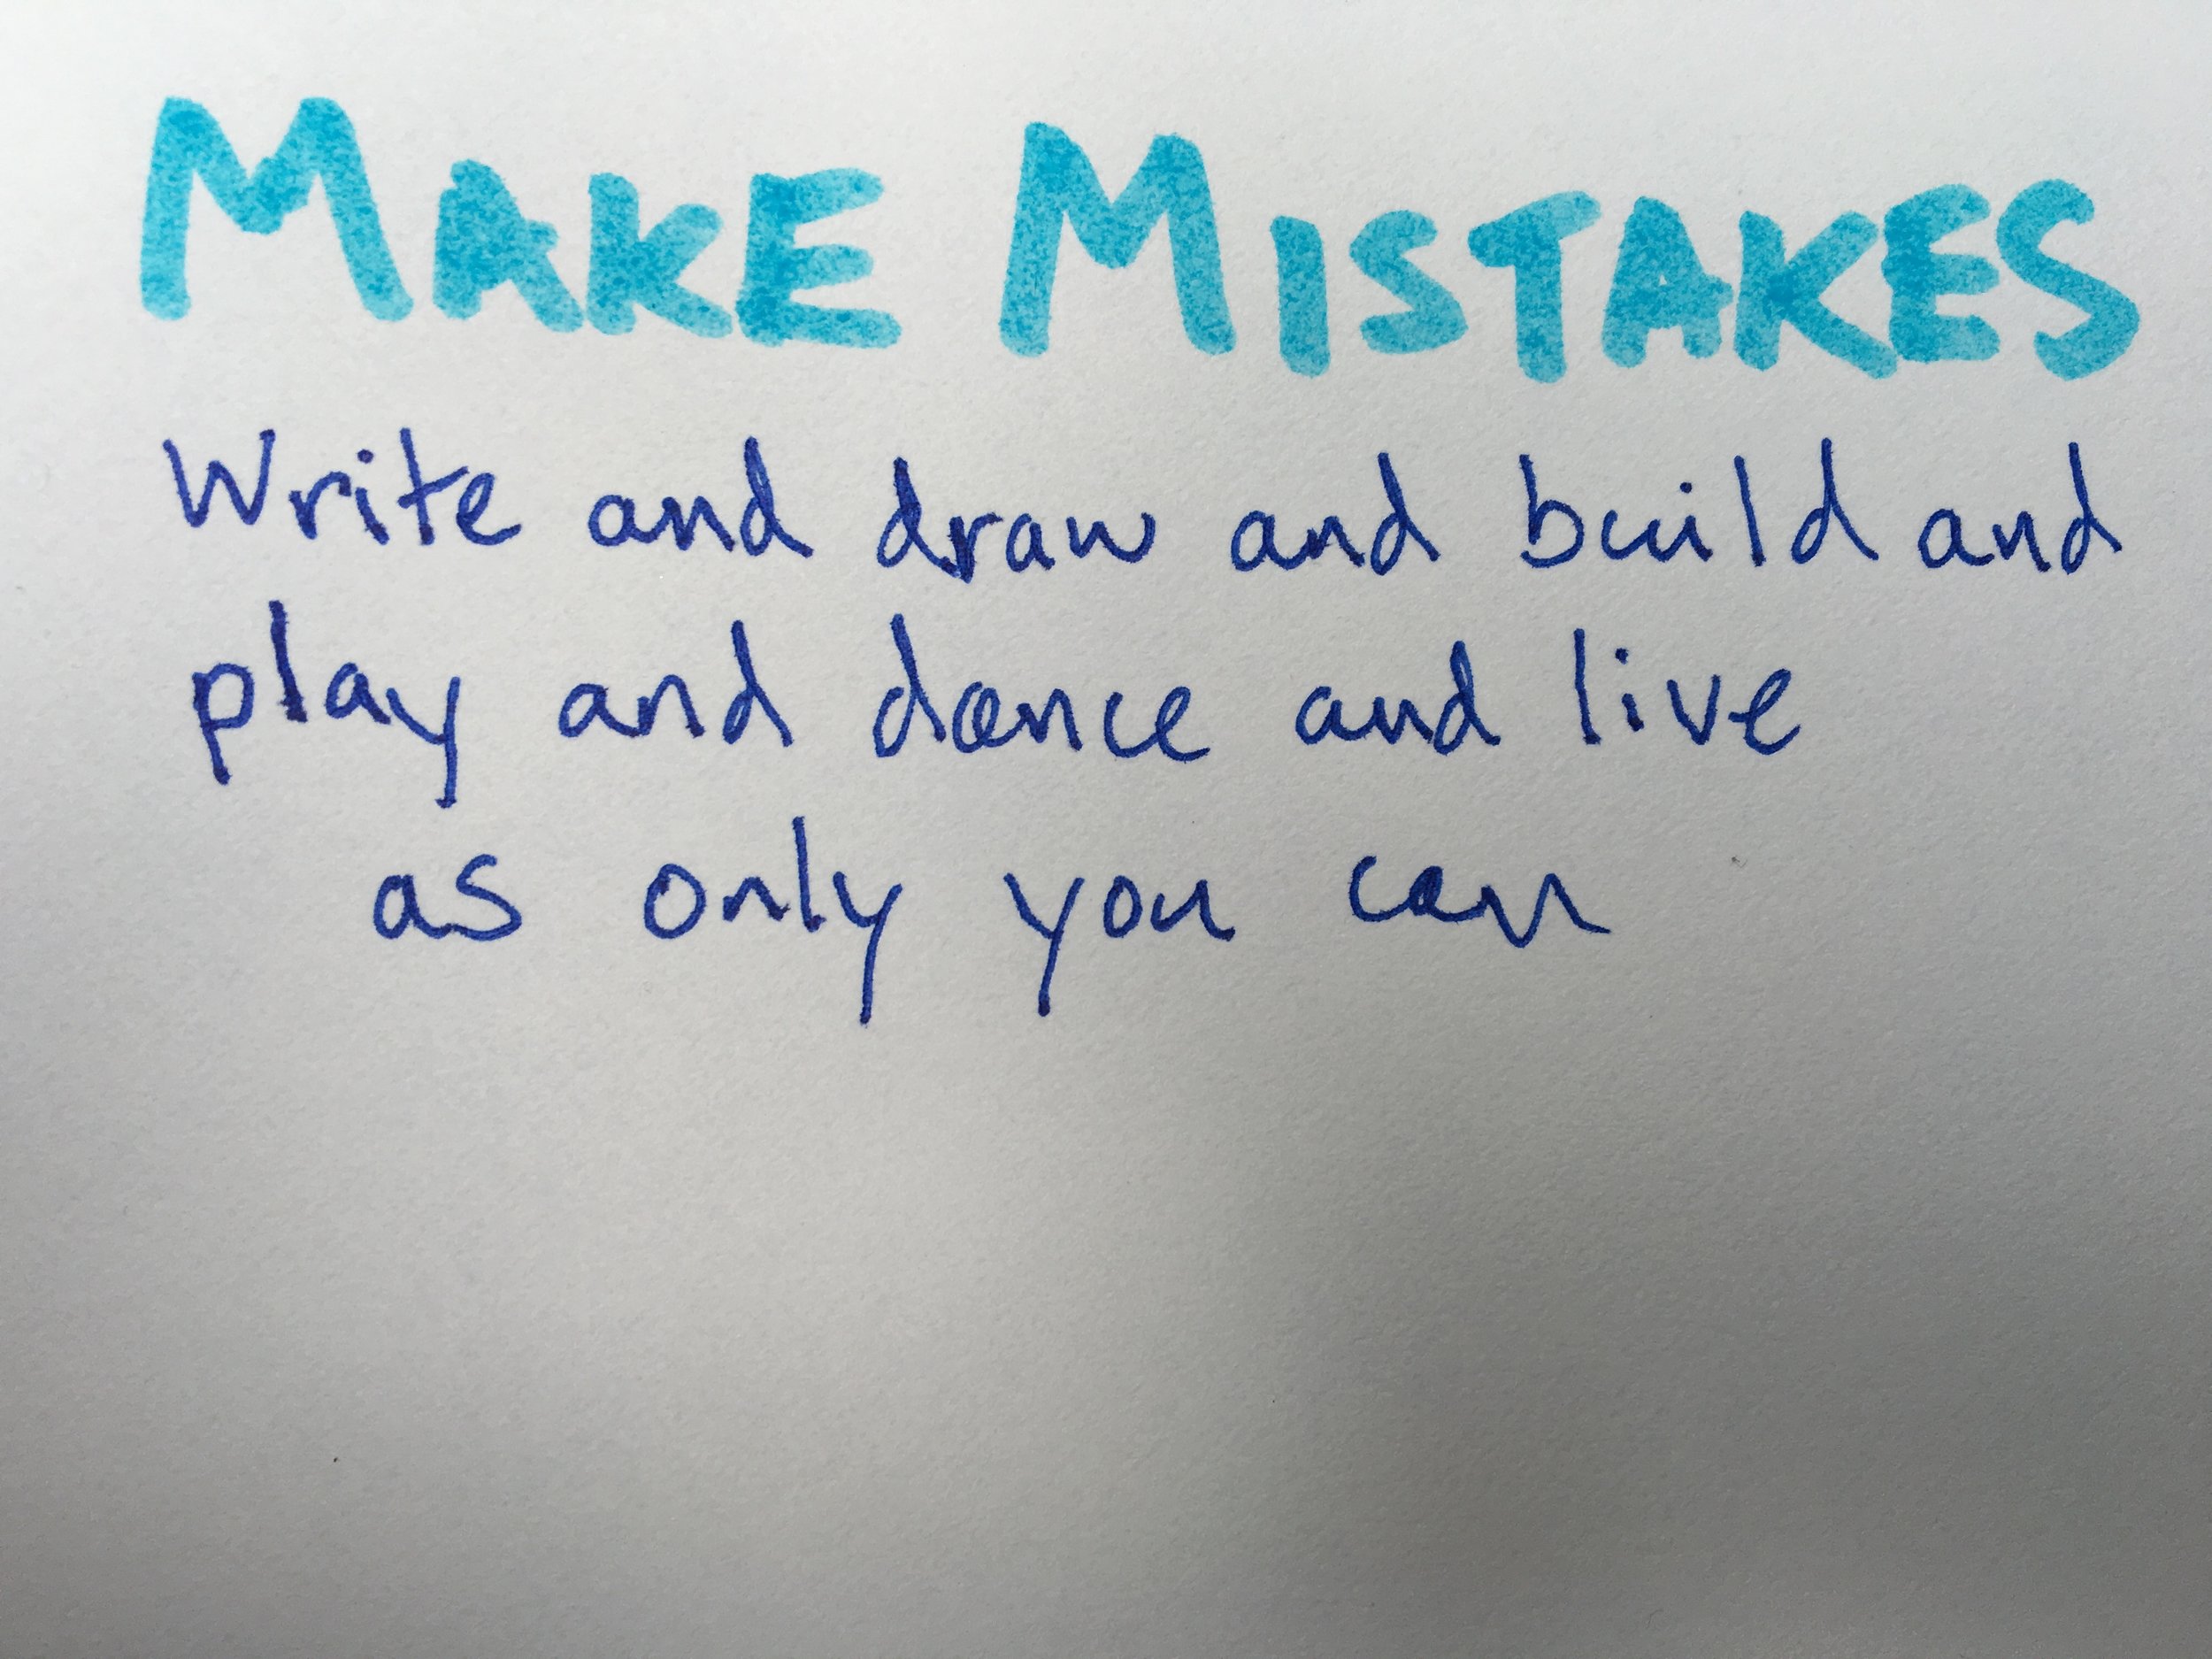 MAKE MISTAKES
Write and draw and build and
play and dance and live
as only you can